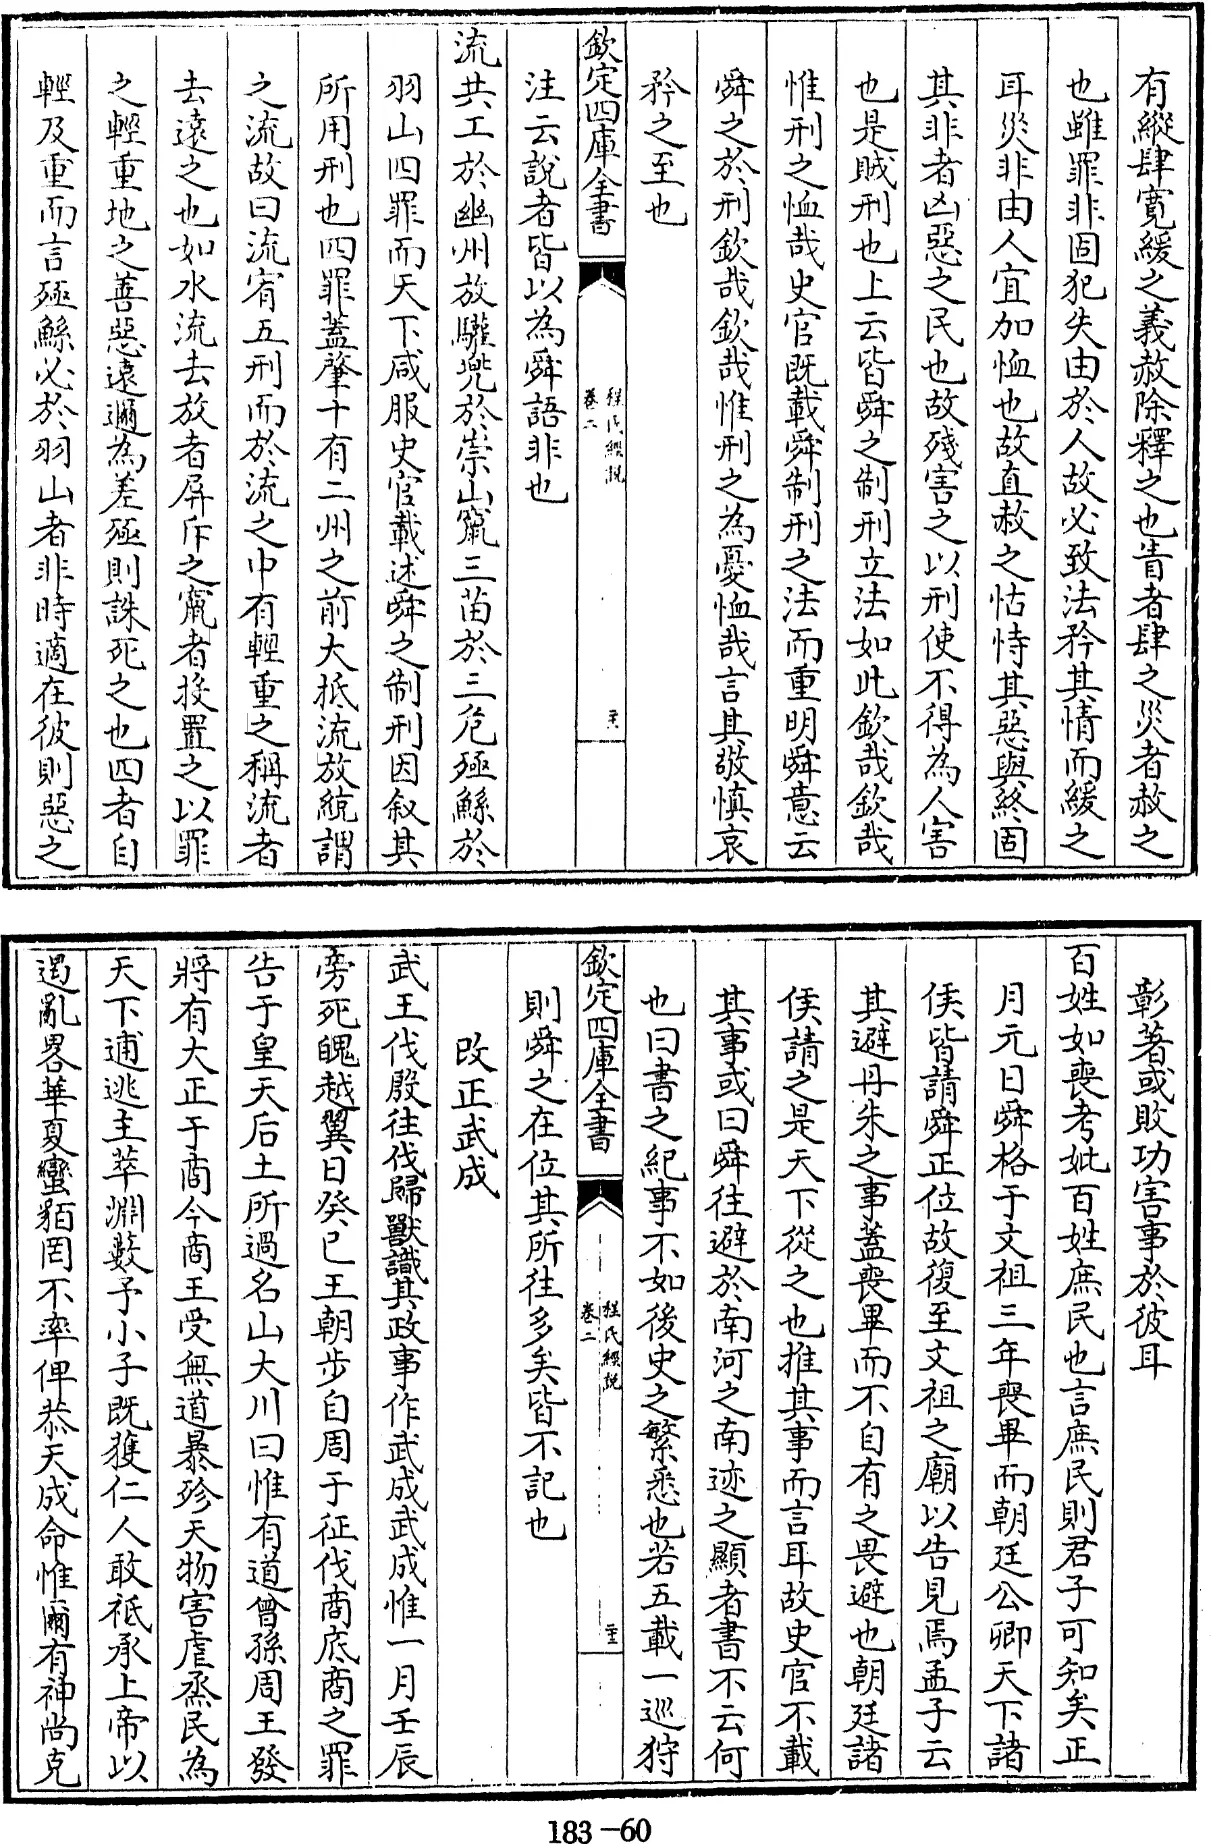 有縱肆寛緩之義赦除釋之也眚者肆之災者赦之
也雖罪非固犯失由於人故必致法矜其情而緩之
耳災非由人宜加恤也故直赦之怙恃其惡與終固
其非者凶惡之民也故殘害之以刑使不得為人害
也是賊刑也上云皆舜之制刑立法如此欽哉欽哉
惟刑之恤哉史官既載舜制刑之法而重明舜意云
舜之於刑欽哉欽哉惟刑之為憂恤哉言其敬慎哀
矜之至也
欽定四庫全書
程氏經說
卷二
注云説者皆以為舜語非也
流共工於幽州放驩兜於崇山竄三苗於三危殛鯀於
羽山四罪而天下咸服史官載述舜之制刑因叙其
所用刑也四罪蓋肇十有二州之前大抵流放統謂
之流故曰流宥五刑而於流之中有輕重之稱流者
去遠之也如水流去放者屏斥之竄者投置之以罪
之輕重地之善惡遠邇為差殛則誅死之也四者自
輕及重而言殛鯀必於羽山者非時適在彼則惡之
彰著或敗功害事於彼耳
百姓如喪考妣百姓庶民也言庶民則君子可知矣正
月元日舜格于文祖三年喪畢而朝廷公卿天下諸
侯皆請舜正位故復至文祖之廟以告見焉孟子云
其避丹朱之事蓋喪畢而不自有之畏避也朝廷諸
侯請之是天下從之也推其事而言耳故史官不載
其事或曰舜往避於南河之南迹之顯者書不云何
也曰書之紀事不如後史之繁悉也若五載一巡狩
欽定四庫全書
程氏經說
卷二
則舜之在位其所往多矣皆不記也
改正武成
武王伐殷往伐歸獸識其政事作武成武成惟一月壬辰
旁死魄越翼日癸巳王朝步自周于征伐商底商之罪
告于皇天后土所過名山大川曰惟有道曾孫周王發
將有大正于商今商王受無道暴殄天物害虐烝民為
天下逋逃主萃淵藪予小子既獲仁人敢祗承上帝以
遏亂畧華夏蠻貊罔不率俾恭天成命惟爾有神尚克
183-60